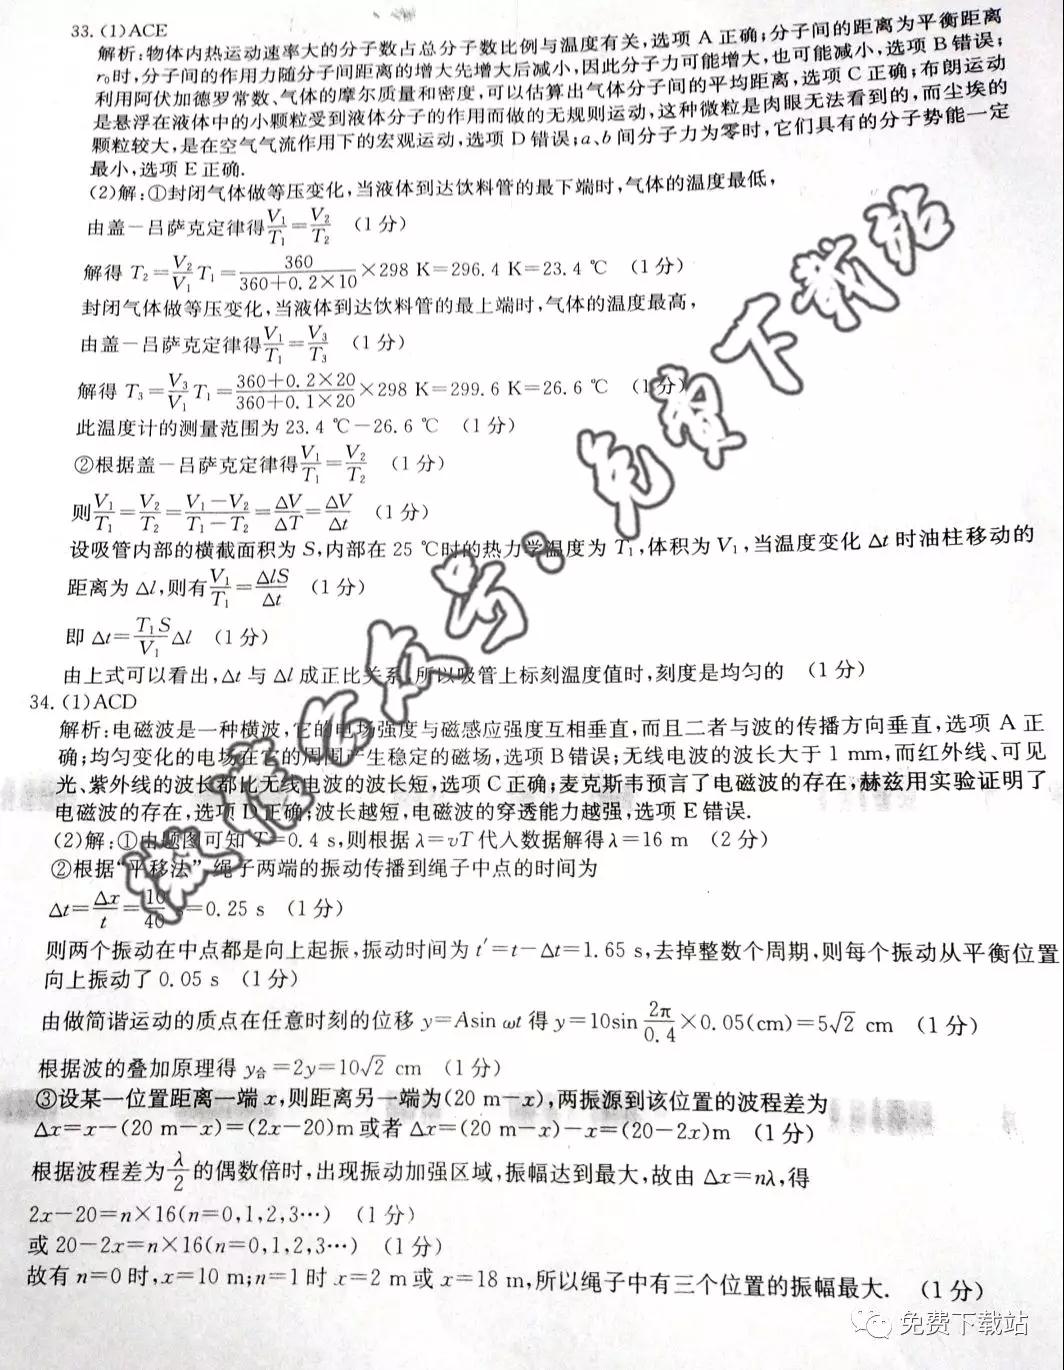 33. (1)ACE
解析:物体内热运动速率大的分子数占总分子数比例与温度有关,选项 A 正确;分子间的距离为平衡距离
r₀时,分子间的作用力随分子间距离的增大先增大后减小,因此分子力可能增大,也可能减小,选项 B 错误;
利用阿伏加德罗常数、气体的摩尔质量和密度,可以估算出气体分子间的平均距离,选项 C 正确;布朗运动
是悬浮在液体中的小颗粒受到液体分子的作用而做的无规则运动,这种微粒是肉眼无法看到的,而尘埃的
颗粒较大,是在空气气流作用下的宏观运动,选项 D 错误;a、b 间分子力为零时,它们具有的分子势能一定
最小,选项 E 正确.
(2)解:①封闭气体做等压变化,当液体到达饮料管的最下端时,气体的温度最低,
由盖－吕萨克定律得V₁/T₁=V₂/T₂ (1分)
解得 T₂=V₂/V₁ T₁=360/(360+0.2×10)×298 K=296.4 K=23.4 ℃ (1分)
封闭气体做等压变化,当液体到达饮料管的最上端时,气体的温度最高,
由盖－吕萨克定律得V₁/T₁=V₃/T₃ (1分)
解得 T₃=V₃/V₁ T₁=(360+0.2×20)/(360+0.1×20)×298 K=299.6 K=26.6 ℃ (1分)
此温度计的测量范围为 23.4 ℃－26.6 ℃ (1分)
②根据盖－吕萨克定律得V₁/T₁=V₂/T₂ (1分)
则V₁/T₁=V₂/T₂=(V₁-V₂)/(T₁-T₂)=ΔV/ΔT=ΔV/Δt (1分)
设吸管内部的横截面积为 S,内部在 25 ℃时的热力学温度为 T₁,体积为 V₁,当温度变化 Δt 时油柱移动的
距离为 Δl,则有V₁/T₁=ΔlS/Δt (1分)
即 Δt=T₁S/V₁ Δl (1分)
由上式可以看出,Δt 与 Δl 成正比关系,所以吸管上标刻温度值时,刻度是均匀的 (1分)
34. (1)ACD
解析:电磁波是一种横波,它的电场强度与磁感应强度互相垂直,而且二者与波的传播方向垂直,选项 A 正
确;均匀变化的电场在它的周围产生稳定的磁场,选项 B 错误;无线电波的波长大于 1 mm,而红外线、可见
光、紫外线的波长都比无线电波的波长短,选项 C 正确;麦克斯韦预言了电磁波的存在,赫兹用实验证明了
电磁波的存在,选项 D 正确;波长越短,电磁波的穿透能力越强,选项 E 错误.
(2)解:①由题图可知 T=0.4 s,则根据 λ=vT 代人数据解得 λ=16 m (2分)
②根据“平移法”,绳子两端的振动传播到绳子中点的时间为
Δt=Δx/t=10/40 s=0.25 s (1分)
则两个振动在中点都是向上起振,振动时间为 t′=t-Δt=1.65 s,去掉整数个周期,则每个振动从平衡位置
向上振动了 0.05 s (1分)
由做简谐运动的质点在任意时刻的位移 y=Asin ωt 得 y=10sin 2π/0.4×0.05(cm)=5√2 cm (1分)
根据波的叠加原理得 y合=2y=10√2 cm (1分)
③设某一位置距离一端 x,则距离另一端为(20 m-x),两振源到该位置的波程差为
Δx=x-(20 m-x)=(2x-20)m 或者 Δx=(20 m-x)-x=(20-2x)m (1分)
根据波程差为λ/2的偶数倍时,出现振动加强区域,振幅达到最大,故由 Δx=nλ,得
2x-20=n×16(n=0,1,2,3…) (1分)
或 20-2x=n×16(n=0,1,2,3…) (1分)
故有 n=0 时,x=10 m;n=1 时 x=2 m 或 x=18 m,所以绳子中有三个位置的振幅最大. (1分)
微信公众号:免费下载站
免费下载站